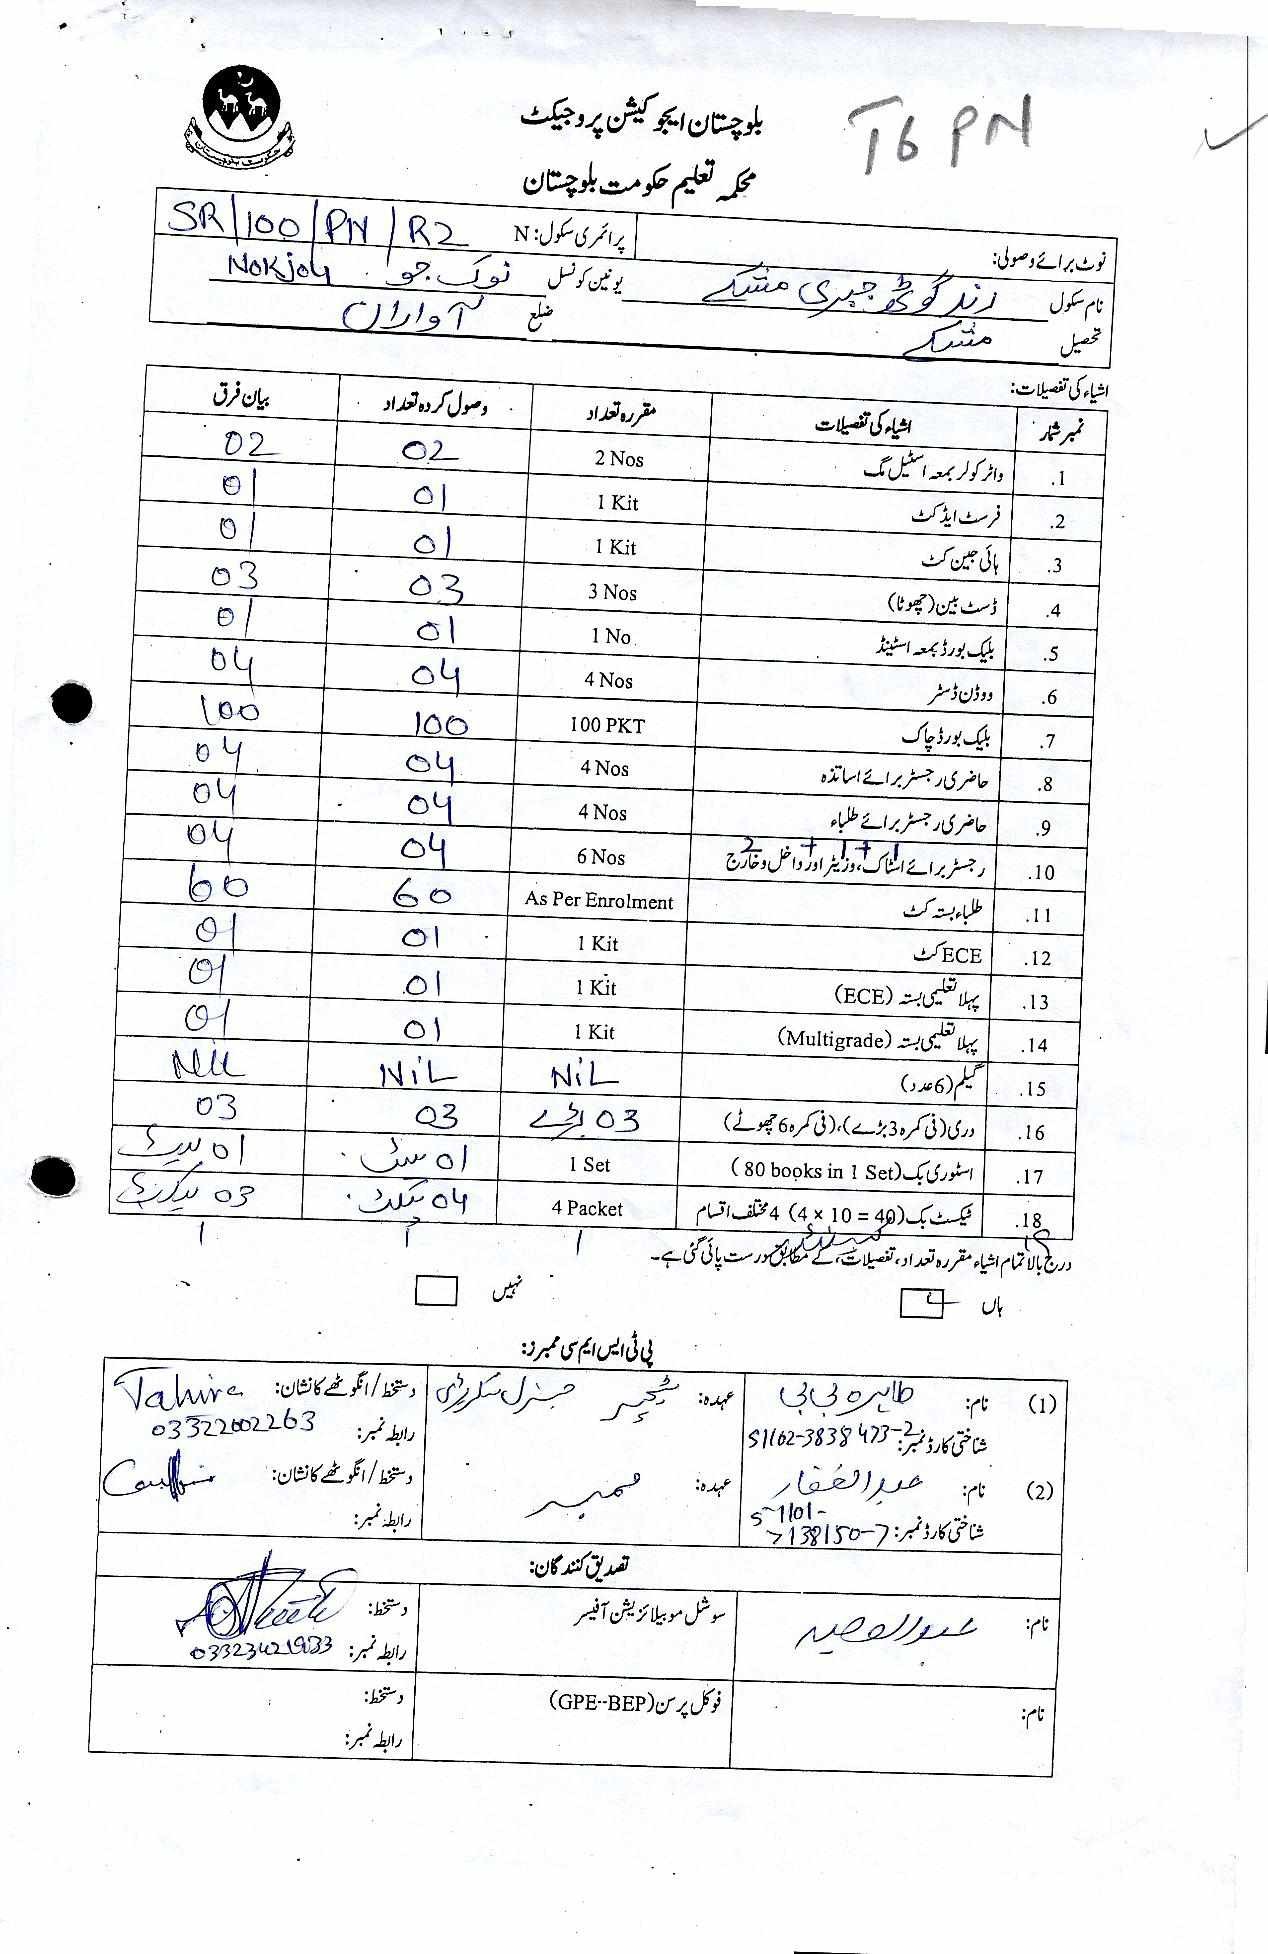 حکومت بلوچستان
بلوچستان ایجوکیشن پروجیکٹ
T6 PN
محکمہ تعلیم حکومت بلوچستان
نوٹ برائے وصولی: پرائمری سکول: N SR/100/PN/R2
نام سکول رند گوٹھ جیری مشکے یونین کونسل نوک جو Nokjou
تحصیل مشکے ضلع آواران
اشیاء کی تفصیلات:
نمبر شمار اشیاء کی تفصیلات مقررہ تعداد وصول کردہ تعداد بیان فرق
1. واٹر کولر بمعہ اسٹیل مگ 2 Nos 02 02
2. فرسٹ ایڈ کٹ 1 Kit 01 01
3. ہائی جین کٹ 1 Kit 01 01
4. ڈسٹ بین (چھوٹا) 3 Nos 03 03
5. بلیک بورڈ بمعہ اسٹینڈ 1 No. 01 01
6. ووڈن ڈسٹر 4 Nos 04 04
7. بلیک بورڈ چاک 100 PKT 100 100
8. حاضری رجسٹر برائے اساتذہ 4 Nos 04 04
9. حاضری رجسٹر برائے طلباء 4 Nos 04 04
10. رجسٹر برائے اسٹاک، وزیٹر اور داخل و خارج 2+1+1 6 Nos 04 04
11. طلباء بستہ کٹ As Per Enrolment 60 60
12. ECE کٹ 1 Kit 01 01
13. پہلا تعلیمی بستہ (ECE) 1 Kit 01 01
14. پہلا تعلیمی بستہ (Multigrade) 1 Kit 01 01
15. گیلم (6 عدد) NiL NiL Nil
16. دری (فی کمرہ 3 بڑے)، (فی کمرہ 6 چھوٹے) 03 بڑے 03 03
17. اسٹوری بک (80 books in 1 Set) 1 Set 01 سٹ 01
18. ٹیکسٹ بک (4 x 10 = 40) 4 مختلف اقسام 4 Packet 04 پیکٹ 03
درج بالا تمام اشیاء مقررہ تعداد، تفصیلات، کے مطابق درست پائی گئی ہے۔
ہاں نہیں
پی ٹی ایس ایم سی ممبرز:
(1) نام: طاہرہ بی بی عہدہ: ٹیچر جنرل سکرٹری دستخط/انگوٹھے کا نشان: Tahira
شناختی کارڈ نمبر: 51102-3838473-2 رابطہ نمبر: 03322002263
(2) نام: عبدالغفار عہدہ: ممبر دستخط/انگوٹھے کا نشان:
شناختی کارڈ نمبر: 5-1101-7138150-7 رابطہ نمبر:
تصدیق کنندگان:
نام: سوشل موبیلائزیشن آفیسر دستخط:
رابطہ نمبر: 03323421933
نام: فوکل پرسن (GPE--BEP) دستخط:
رابطہ نمبر: